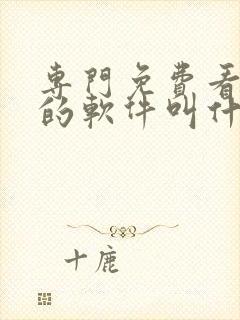 專門免費看
的軟件叫什
十鹿